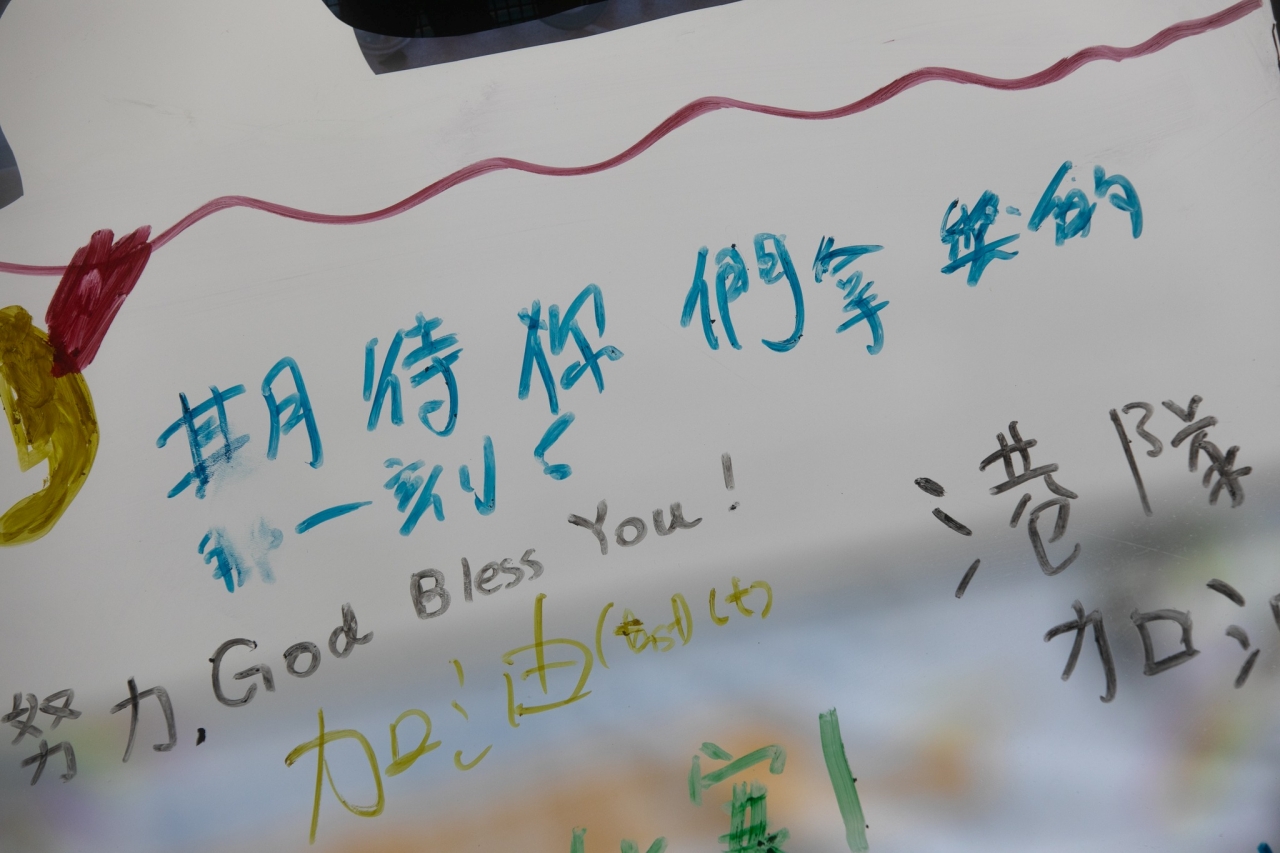 期待你們拿獎的
那一刻
God Bless You!
努力.
加油
港隊
加油